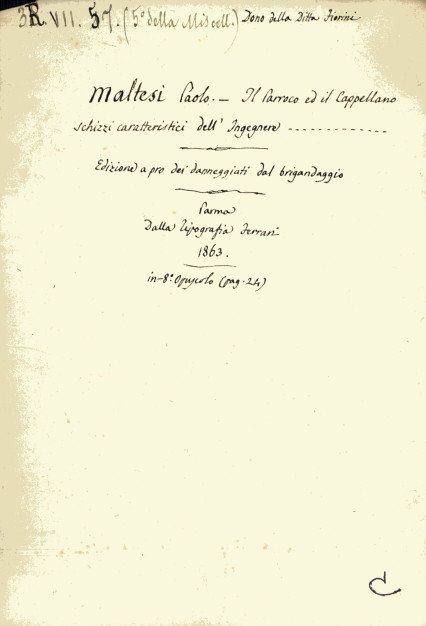 3R. VII. 57. (5º della Miscell.) Dono della Ditta Fiorini
Maltesi Paolo. — Il Parroco ed il Cappellano
schizzi caratteristici dell' Ingegnere -------------
Edizione a pro dei danneggiati dal brigandaggio
Parma
Dalla Tipografia Ferrari
1863.
in-8º Opuscolo (pag. 24)
C